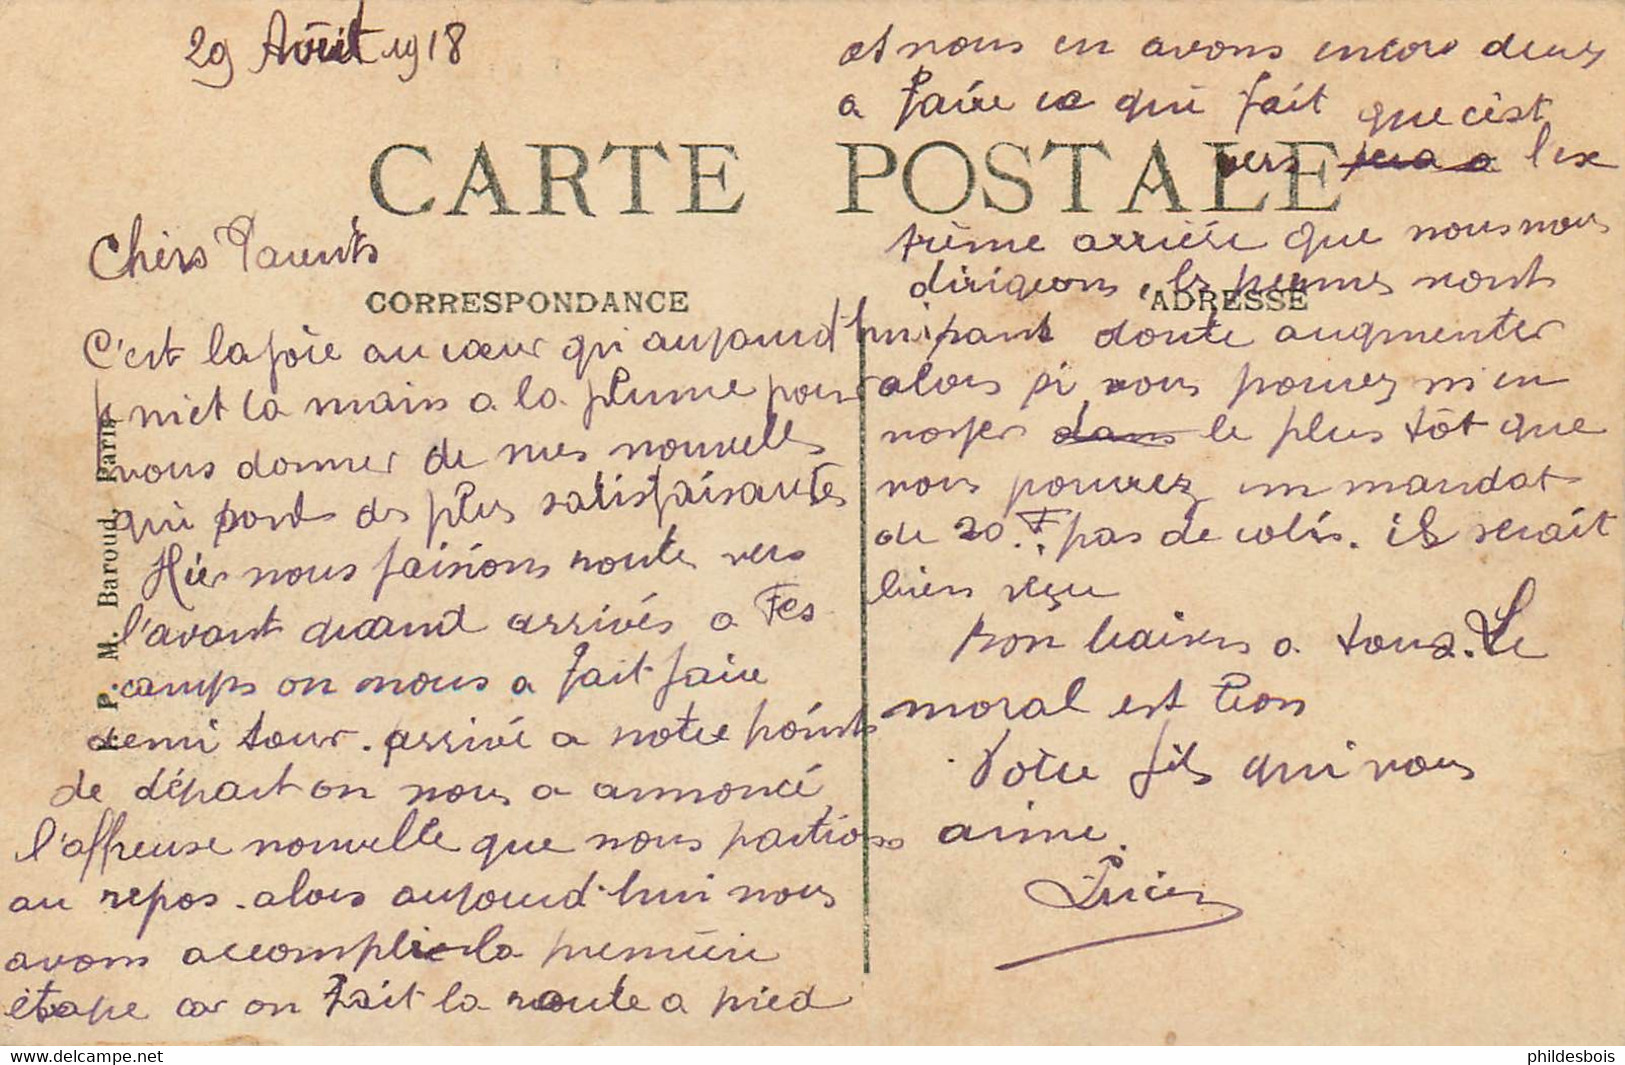 29 Août 1918
CARTE POSTALE
Chers Parents
CORRESPONDANCE
C'est la joie au cœur qu aujourd'hui
je met la main a la plume pour
vous donner de mes nouvelles
qui sont des plus satisfaisantes
Hier nous faisions route vers
l'avant quand arrivés a Fes
camps on nous a fait faire
demi tour. arrivé a notre points
de départ on nous a annoncé
l'affreuse nouvelle que nous partions
au repos. alors aujourd'hui nous
avons accomplie la première
étape car on fait la route a pied
et nous en avons encore deux
a faire ce qui fait que c'est
vers l'ex
trème arrière que nous nous
dirigeons, les permes vont
ADRESSE
sans doute augmenter
alors si vous pouvez m'en
voyer dans le plus tôt que
vous pourrez un mandat
de 20 F. pas de colis. il serait
bien reçu
Bon baisers a tous. Le
moral est bon
Votre fils qui vous
aime.
Lucien
P. P. M. Baroud, Paris
delcampe.net
phildesbois